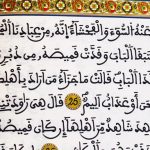 عَنْهُ السُّوءَ وَالْفَحْشَاءَ إِنَّهُ مِنْ عِبَادِنَا
تَبَقَا الْبَابَ وَقَدَّتْ قَمِيصَهُ مِنْ
الْبَابِ قَالَتْ مَا جَزَاءُ مَنْ أَرَادَ بِأَهْلِ
أَوْ عَذَابٌ أَلِيمٌ 25 قَالَ هِيَ رَاوَدَتْنِي
هِدَ شَاهِدٌ مِنْ أَهْلِهَا إِنْ كَانَ قَمِيصُهُ